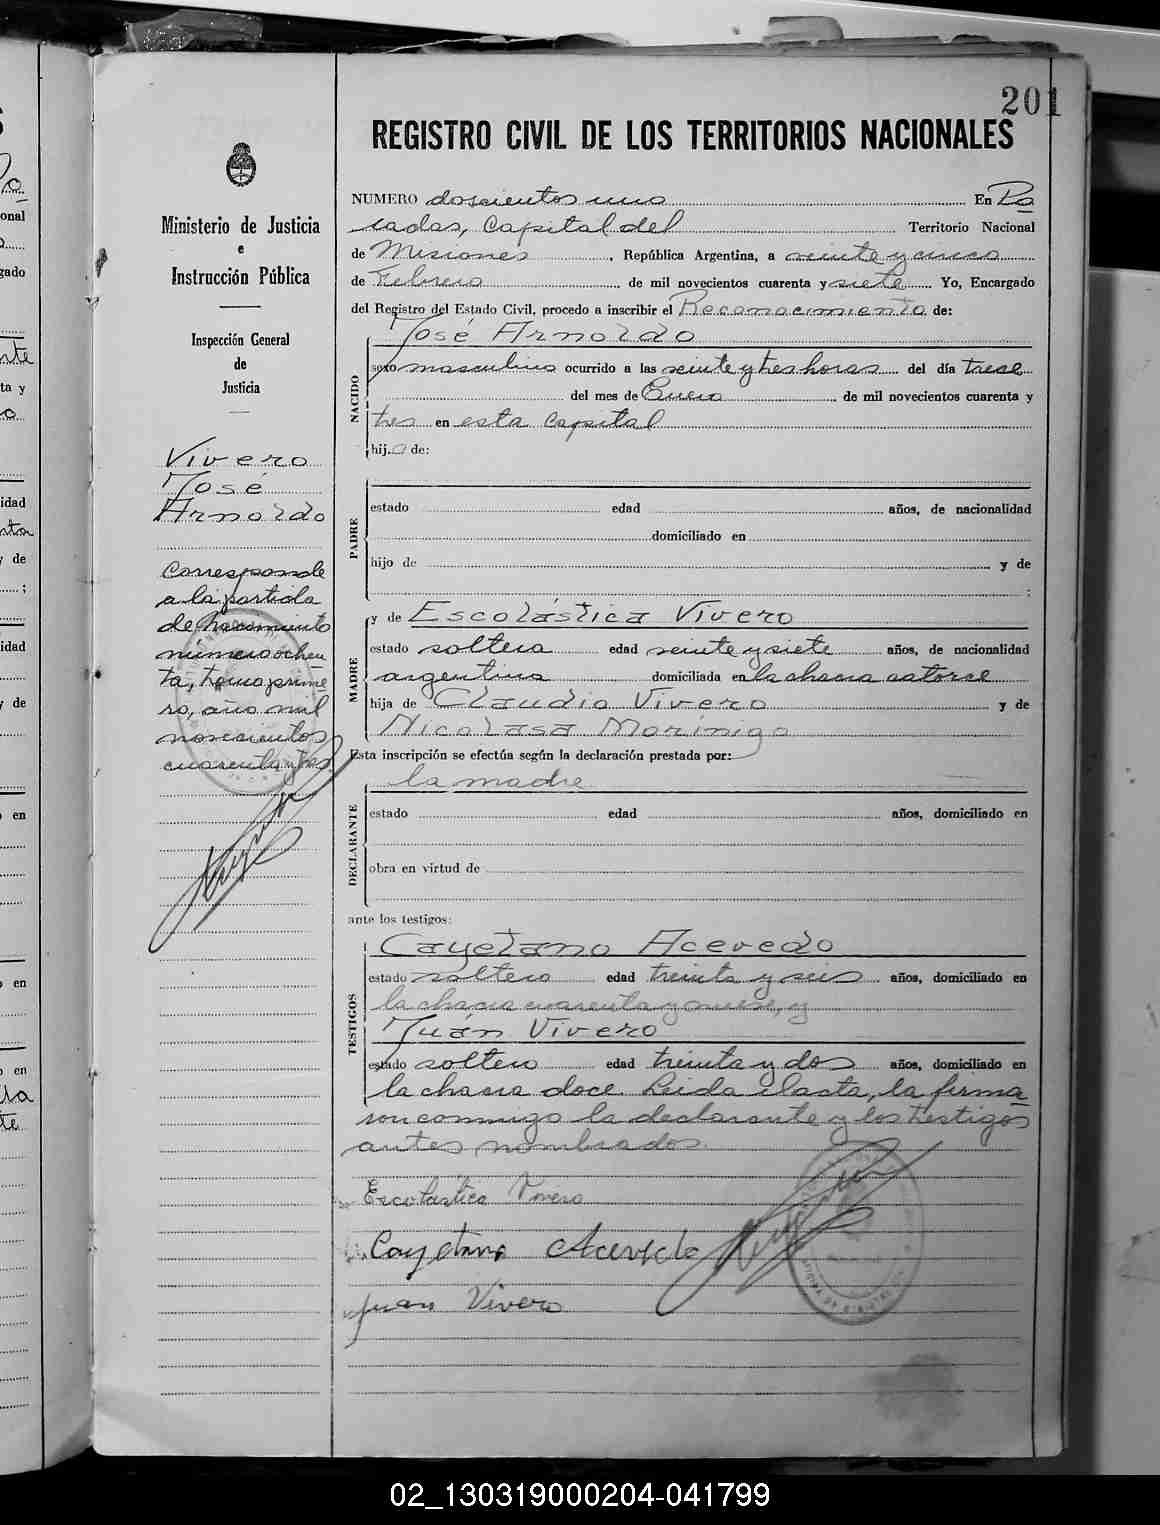 201
REGISTRO CIVIL DE LOS TERRITORIOS NACIONALES
Ministerio de Justicia
e
Instrucción Pública
Inspección General
de
Justicia
Vivero
José
Arnoldo
Corresponde
a la partida
de nacimiento
número ochen
ta, tomo prime
ro, año mil
novecientos
cuarenta y tres.
NUMERO doscientos uno En Po
sadas, Capital del Territorio Nacional
de Misiones, República Argentina, a veinte y cinco
de Febrero de mil novecientos cuarenta y siete Yo, Encargado
del Registro del Estado Civil, procedo a inscribir el Reconocimiento de:
José Arnoldo
NACIDO
sexo masculino ocurrido a las veinte y tres horas del día trece
del mes de Enero de mil novecientos cuarenta y
tres en esta Capital
hijo de:
PADRE
estado edad años, de nacionalidad
domiciliado en
hijo de y de
;
MADRE
y de Escolástica Vivero
estado soltera edad veinte y siete años, de nacionalidad
argentina domiciliada en la chacra catorce
hija de Claudio Vivero y de
Nicolasa Morínigo
Esta inscripción se efectúa según la declaración prestada por:
la madre
DECLARANTE
estado edad años, domiciliado en
obra en virtud de
ante los testigos:
TESTIGOS
Cayetano Acevedo
estado soltero edad treinta y seis años, domiciliado en
la chacra cuarenta y nueve, y
Juán Vivero
estado soltero edad treinta y dos años, domiciliado en
la chacra doce. Leida el acta, la firma
ron conmigo la declarante y los testigos
antes nombrados.
Escolastica Vivero
Cayetano Acevedo
Juan Vivero
02_130319000204-041799